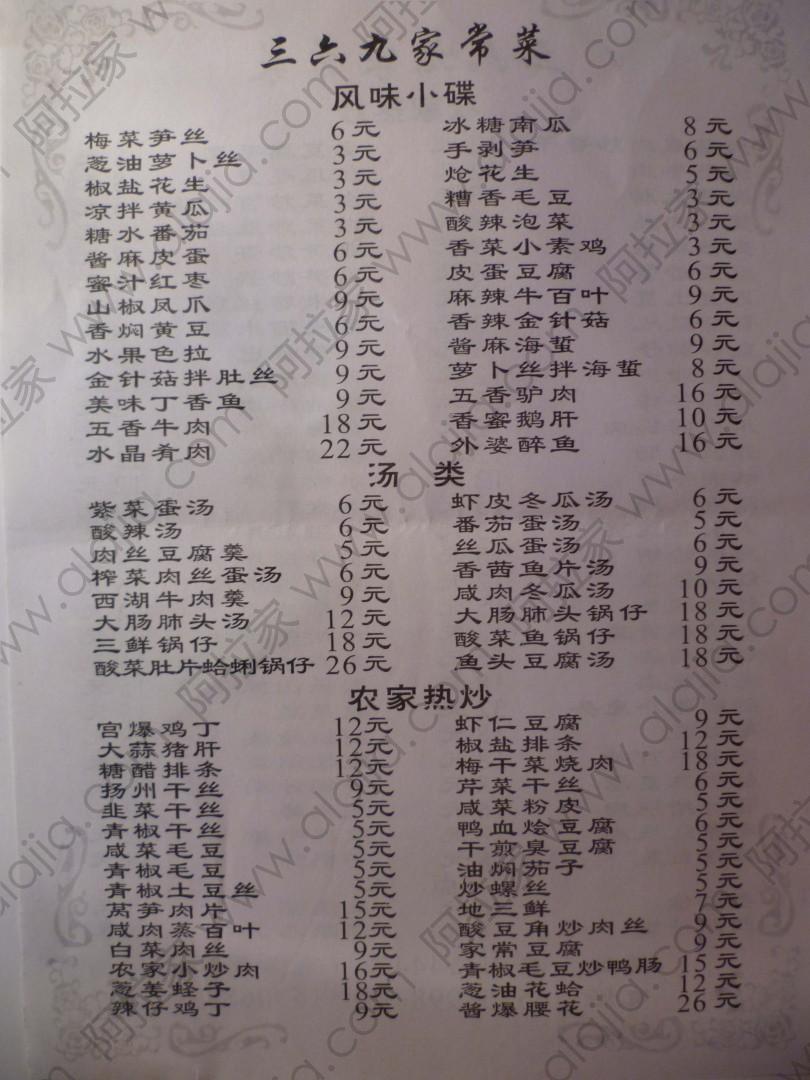 三六九家常菜
风味小碟
梅菜笋丝 6元
葱油萝卜丝 3元
椒盐花生 3元
凉拌黄瓜 3元
糖水番茄 3元
酱麻皮蛋 6元
蜜汁红枣 6元
山椒凤爪 9元
香焖黄豆 6元
水果色拉 9元
金针菇拌肚丝 9元
美味丁香鱼 9元
五香牛肉 18元
水晶肴肉 22元
冰糖南瓜 8元
手剥笋 6元
炝花生 5元
糟香毛豆 3元
酸辣泡菜 3元
香菜小素鸡 3元
皮蛋豆腐 6元
麻辣牛百叶 9元
香辣金针菇 6元
酱麻海蜇 9元
萝卜丝拌海蜇 8元
五香驴肉 16元
香蜜鹅肝 10元
外婆醉鱼 16元
汤类
紫菜蛋汤 6元
酸辣汤 6元
肉丝豆腐羹 5元
榨菜肉丝蛋汤 6元
西湖牛肉羹 9元
大肠肺头汤 12元
三鲜锅仔 18元
酸菜肚片蛤蜊锅仔 26元
虾皮冬瓜汤 6元
番茄蛋汤 5元
丝瓜蛋汤 6元
香茜鱼片汤 9元
咸肉冬瓜汤 10元
大肠肺头锅仔 18元
酸菜鱼锅仔 18元
鱼头豆腐汤 18元
农家热炒
宫爆鸡丁 12元
大蒜猪肝 12元
糖醋排条 12元
扬州干丝 9元
韭菜干丝 5元
青椒干丝 5元
咸菜毛豆 5元
青椒毛豆 5元
青椒土豆丝 5元
莴笋肉片 15元
咸肉蒸百叶 12元
白菜肉丝 9元
农家小炒肉 16元
葱姜蛏子 18元
辣仔鸡丁 9元
虾仁豆腐 9元
椒盐排条 12元
梅干菜烧肉 18元
芹菜干丝 6元
咸菜粉皮 5元
鸭血烩豆腐 6元
干煎臭豆腐 5元
油焖茄子 5元
炒螺丝 5元
地三鲜 7元
酸豆角炒肉丝 9元
家常豆腐 9元
青椒毛豆炒鸭肠 15元
葱油花蛤 12元
酱爆腰花 26元
阿拉家 www.alajia.com